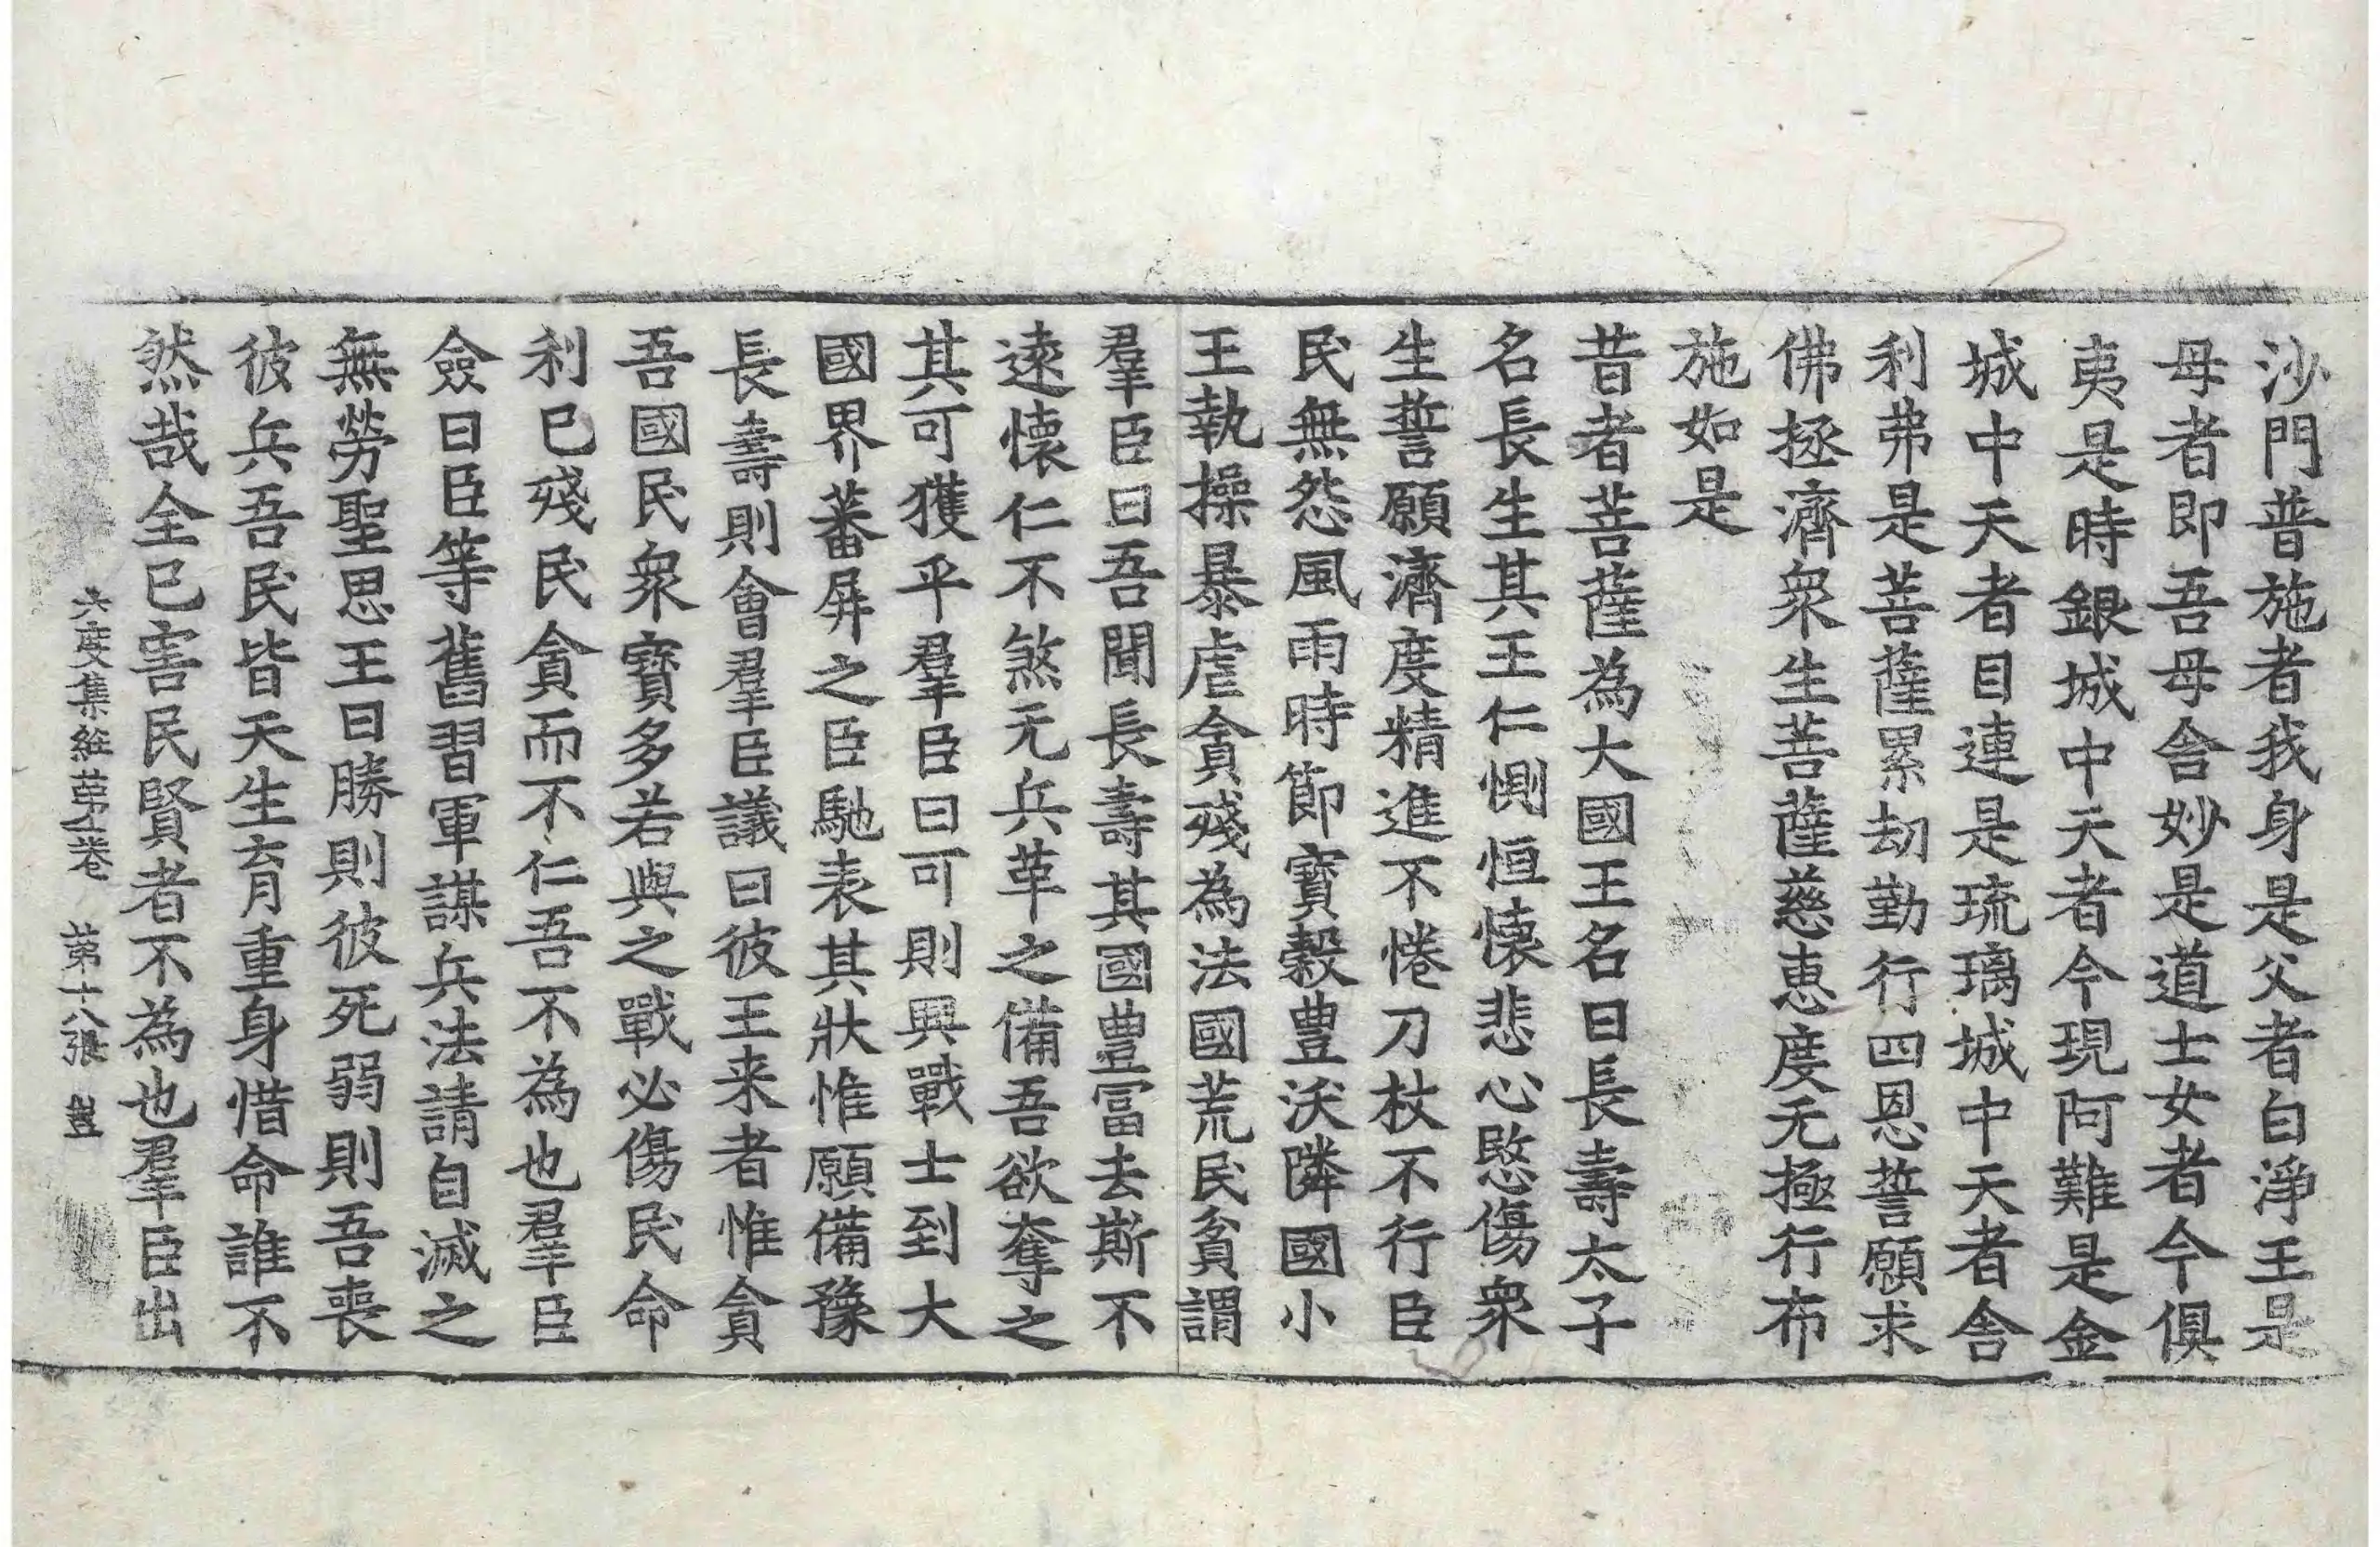 沙門普施者我身是父者白淨王是
母者即吾母舎妙是道士女者今俱
夷是時銀城中天者今現阿難是金
城中天者目連是琉璃城中天者舎
利弗是菩薩累劫勤行四恩誓願求
佛拯濟衆生菩薩慈惠度无極行布
施如是
昔者菩薩為大國王名曰長壽太子
名長生其王仁惻恒懷悲心愍傷衆
生誓願濟度精進不惓刀杖不行臣
民無怨風雨時節寶穀豊沃隣國小
王執操暴虐貪殘為法國荒民貧謂
羣臣曰吾聞長壽其國豊冨去斯不
遠懷仁不煞无兵革之備吾欲奪之
其可獲乎羣臣曰可則興戰士到大
國界蕃屏之臣馳表其狀惟願備豫
長壽則會羣臣議曰彼王来者惟貪
吾國民衆寶多若與之戰必傷民命
利已殘民貪而不仁吾不為也羣臣
僉曰臣等舊習軍謀兵法請自滅之
無勞聖思王曰勝則彼死弱則吾喪
彼兵吾民皆天生育重身惜命誰不
然哉全已害民賢者不為也羣臣出
六度集經第一卷　第十八張　豈